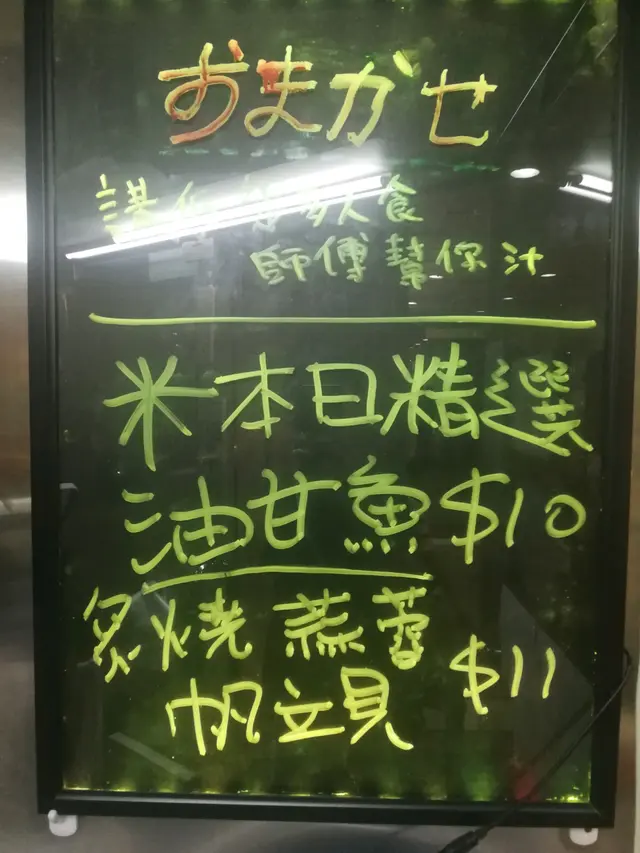 おまかせ
講 多人食
師傅幫你汁
*本日精選
油甘魚 $10
炙燒蒜蓉
帆立貝 $11